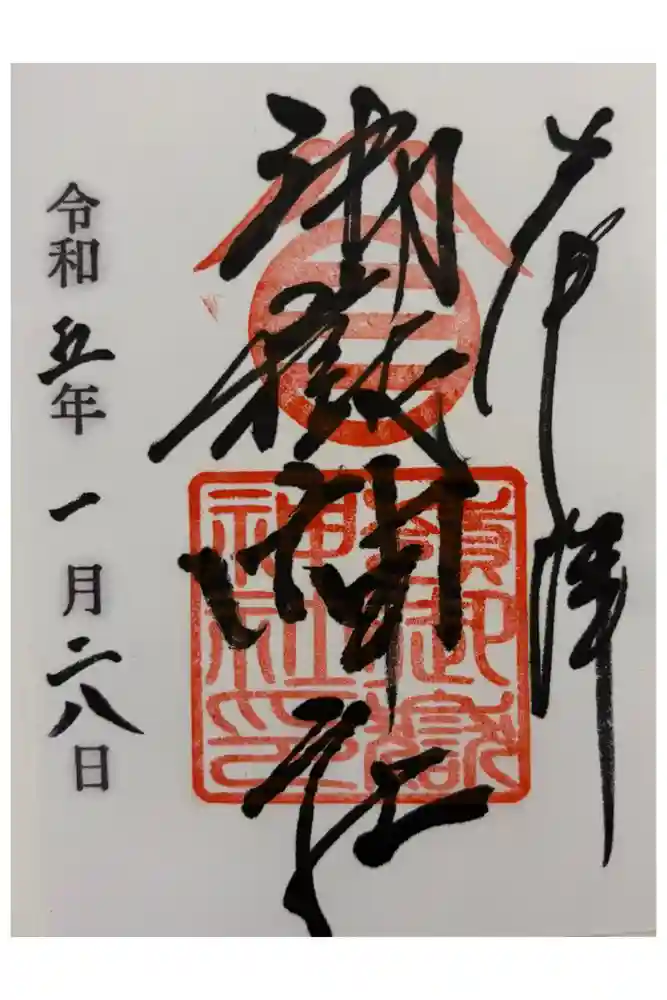 奉拝
御嶽神社
嶺御嶽
神社印
令和五年一月二八日